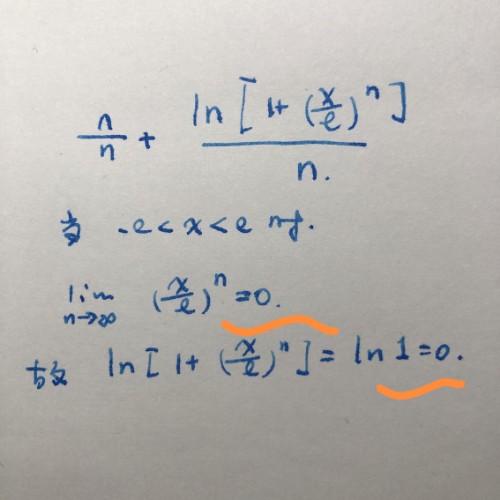 n/n + ln[1+(x/e)^n]/n.
当 -e<x<e 时.
lim n→∞ (x/e)^n =0.
故 ln[1+(x/e)^n]= ln 1=0.